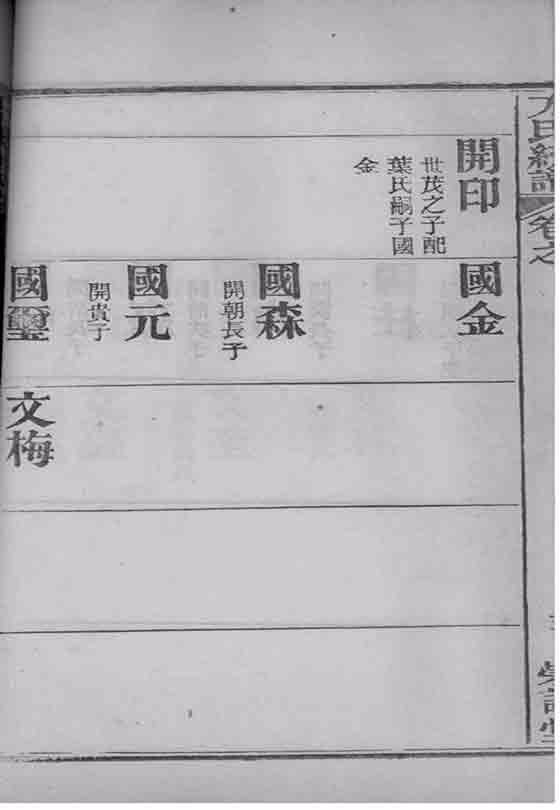 卷之
開印
世茂之子配
葉氏嗣子國
金
國金
國森
開朝長子
國元
開貴子
國璽
文梅